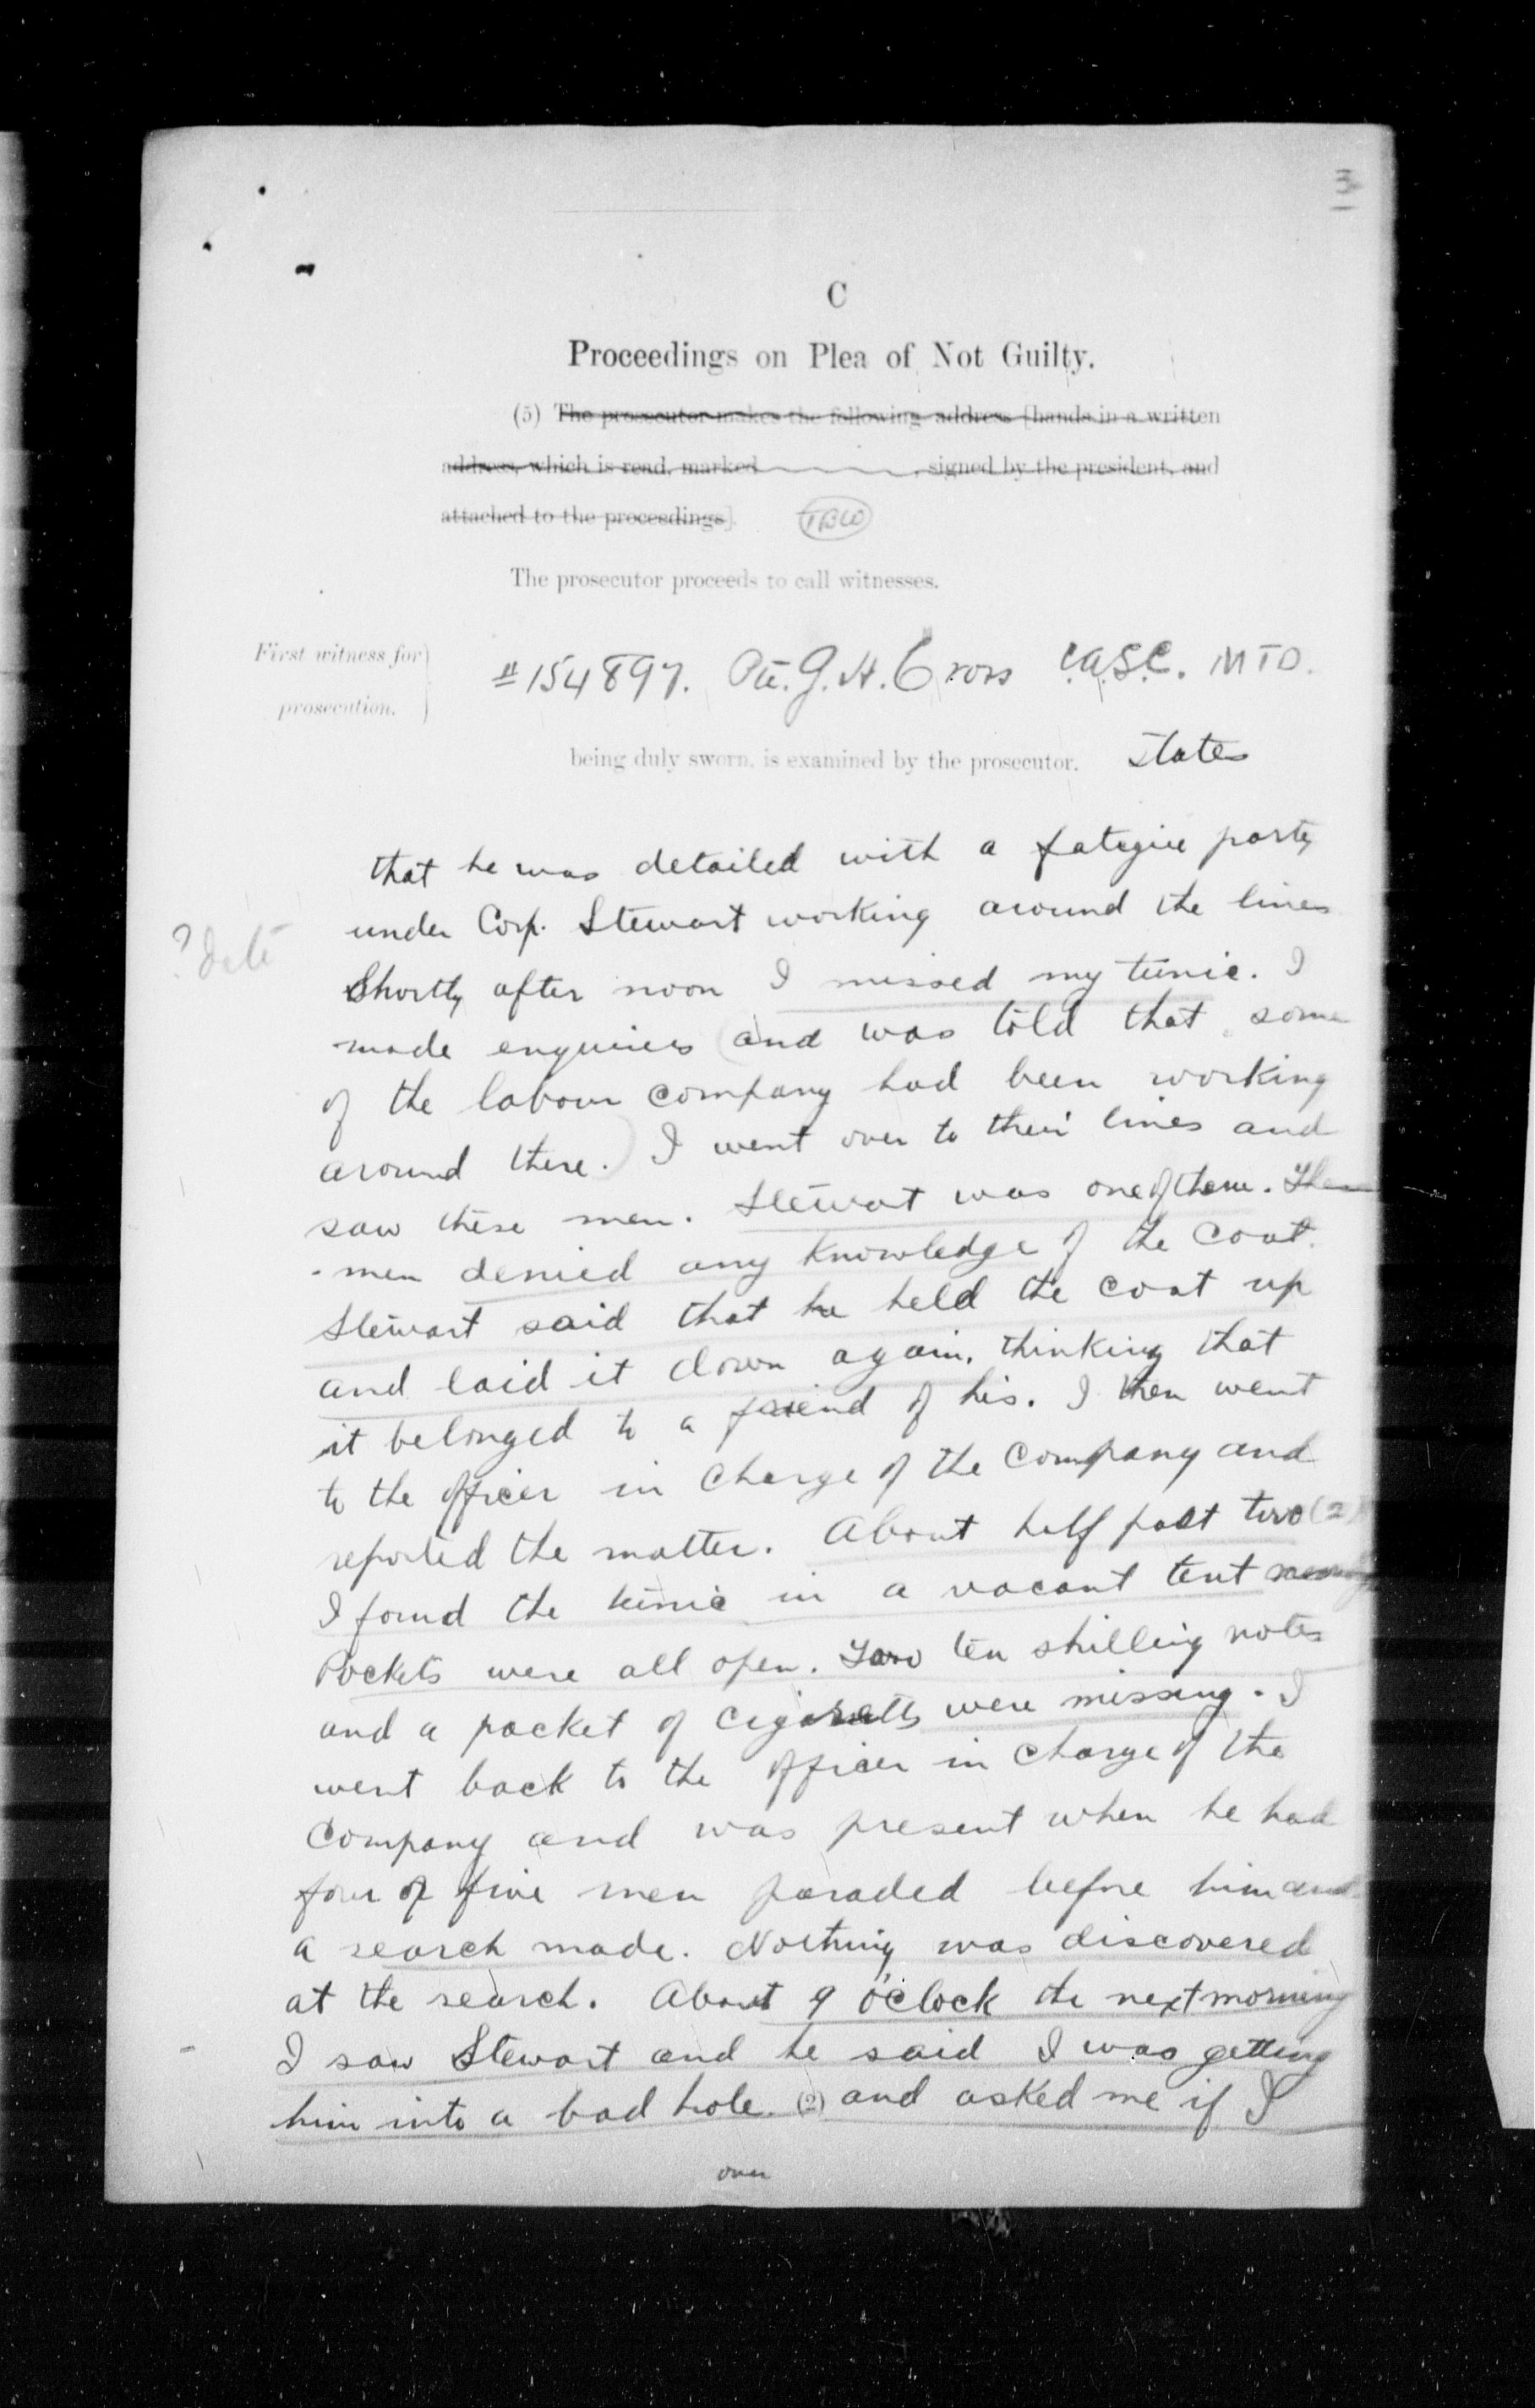 3
C
Proceedings on Plea of Not Guilty.
(5) The prosecutor makes the following address [hands in a written
address, which is read, marked , signed by the president, and
attached to the proceedings].
The prosecutor proceeds to call witnesses.
First witness for
prosecution.
#154897. Pte. G. H. Cross C.A.S.C. M T D.
being duly sworn, is examined by the prosecutor. States
that he was detailed with a fatigue party
? Date
under Corp. Stewart working around the lines
Shortly after noon I missed my tunic. I
made enquiries (and was told that some
of the labour company had been working
around there.) I went over to their lines and
saw these men. Stewart was one of them. The
men denied any knowledge of the coat.
Stewart said that he held the coat up
and laid it down again, thinking that
it belonged to a friend of his. I then went
to the officer in charge of the Company and
reported the matter. About half past two (2)
I found the tunic in a vacant tent
Pockets were all open. Two ten shilling notes
and a packet of cigaretts were missing. I
went back to the officer in charge of the
Company and was present when he had
four of five men paraded before him and
a search made. Nothing was discovered
at the search. About 9 o'clock the next morning
I saw Stewart and he said I was getting
him into a bad hole. (2) and asked me if I
over